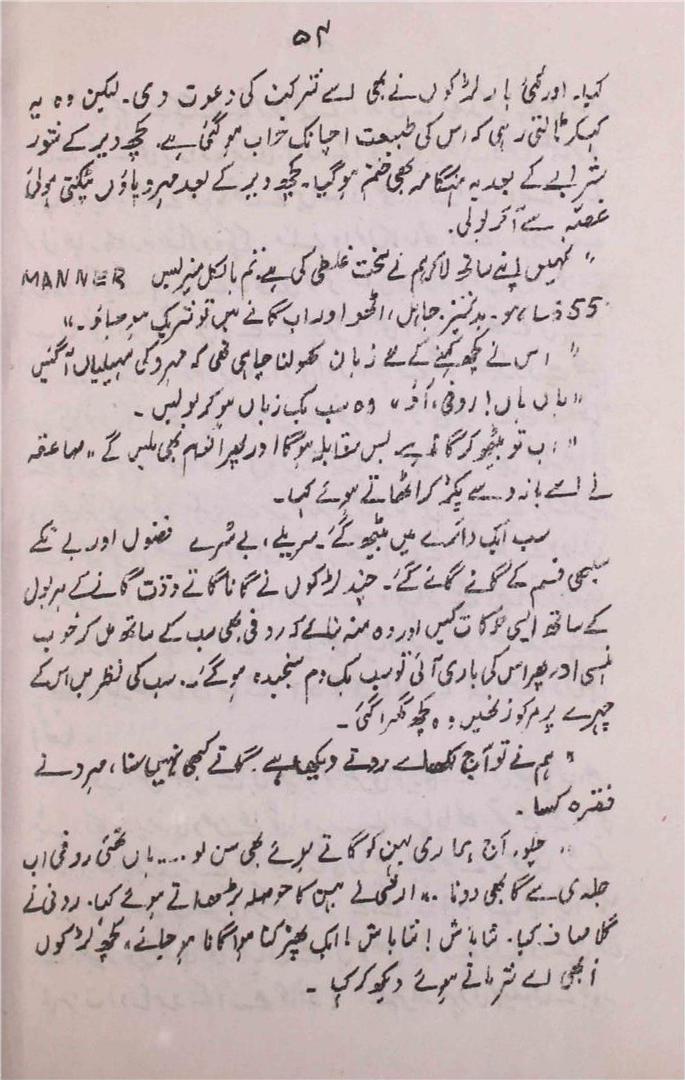 ۵۴
کیا۔ اور کئی بار لڑکوں نے بھی اسے شرکت کی دعوت دی۔ لیکن وہ یہ
کہہ کر ٹالتی رہی کہ اس کی طبیعت اچانک خراب ہو گئی ہے۔ کچھ دیر کے شور
شرابے کے بعد یہ ہنگامہ بھی ختم ہو گیا۔ کچھ دیر کے بعد مہرو پاؤں پٹکتی ہوئی
غصّہ سے آ کر بولی۔
" تمہیں اپنے ساتھ لا کر ہم نے سخت غلطی کی ہے۔ تم بالکل MANNER
ہو۔ بدتمیز، جاہل، اٹھو اور اب گانے میں تو شریک ہو جاؤ۔"
" اس نے کچھ کہنے کے لئے زبان کھولنا چاہی تھی کہ مہرو کی سہیلیاں آ گئیں
"ہاں ہاں! روفی، آؤ" وہ سب یک زباں ہو کر بولیں۔
" اب تو بیٹھو کر گا مقابلہ ہو گا اور پھر انعام بھی ملیں گے" صاعقہ
نے اسے بازو سے پکڑ کر اٹھاتے ہوئے کہا۔
سب ایک دائرے میں بیٹھ گئے۔ سریلے، بے سُرے فضول اور بے تکے
سبھی قسم کے گانے گائے گئے۔ چند لڑکوں نے گانا گاتے وقت گانے کے ہر بول
کے ساتھ ایسی حرکات کیں اور وہ منہ بنائے کہ روفی بھی سب کے ساتھ مل کر خوب
ہنسی اور پھر اس کی باری آئی تو سب یک دم سنجیدہ ہو گئے۔ سب کی نظریں اس کے
چہرے پر مرکوز تھیں وہ کچھ گھبرا گئی۔
" ہم نے تو آج تک اسے روتے دیکھا ہے۔ گاتے کبھی نہیں سنا، مہرو نے
فقرہ کسا۔
" چلو، آج ہماری بہن کو گاتے ہوئے بھی سن لو .... ہاں بھئی روفی اب
جلدی سے گا بھی دو نا ۔" ارشی نے بہن کا حوصلہ بڑھاتے ہوئے کہا۔ روفی نے
گلا صاف کیا۔ شاباش! شاباش! ایک پھڑکتا ہوا گانا ہو جائے، کچھ لڑکوں
نے بھی اسے شرماتے ہوئے دیکھ کر کہا۔